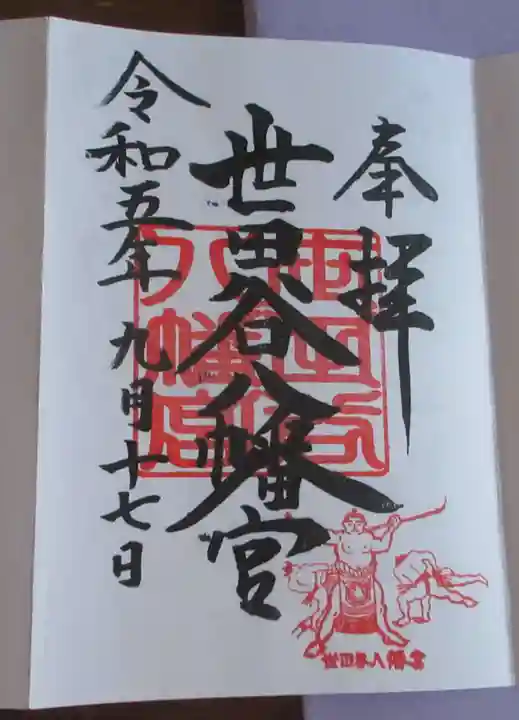 奉拝
世田谷八幡宮
令和五年九月十七日
世田谷
八幡宮
世田谷八幡宮